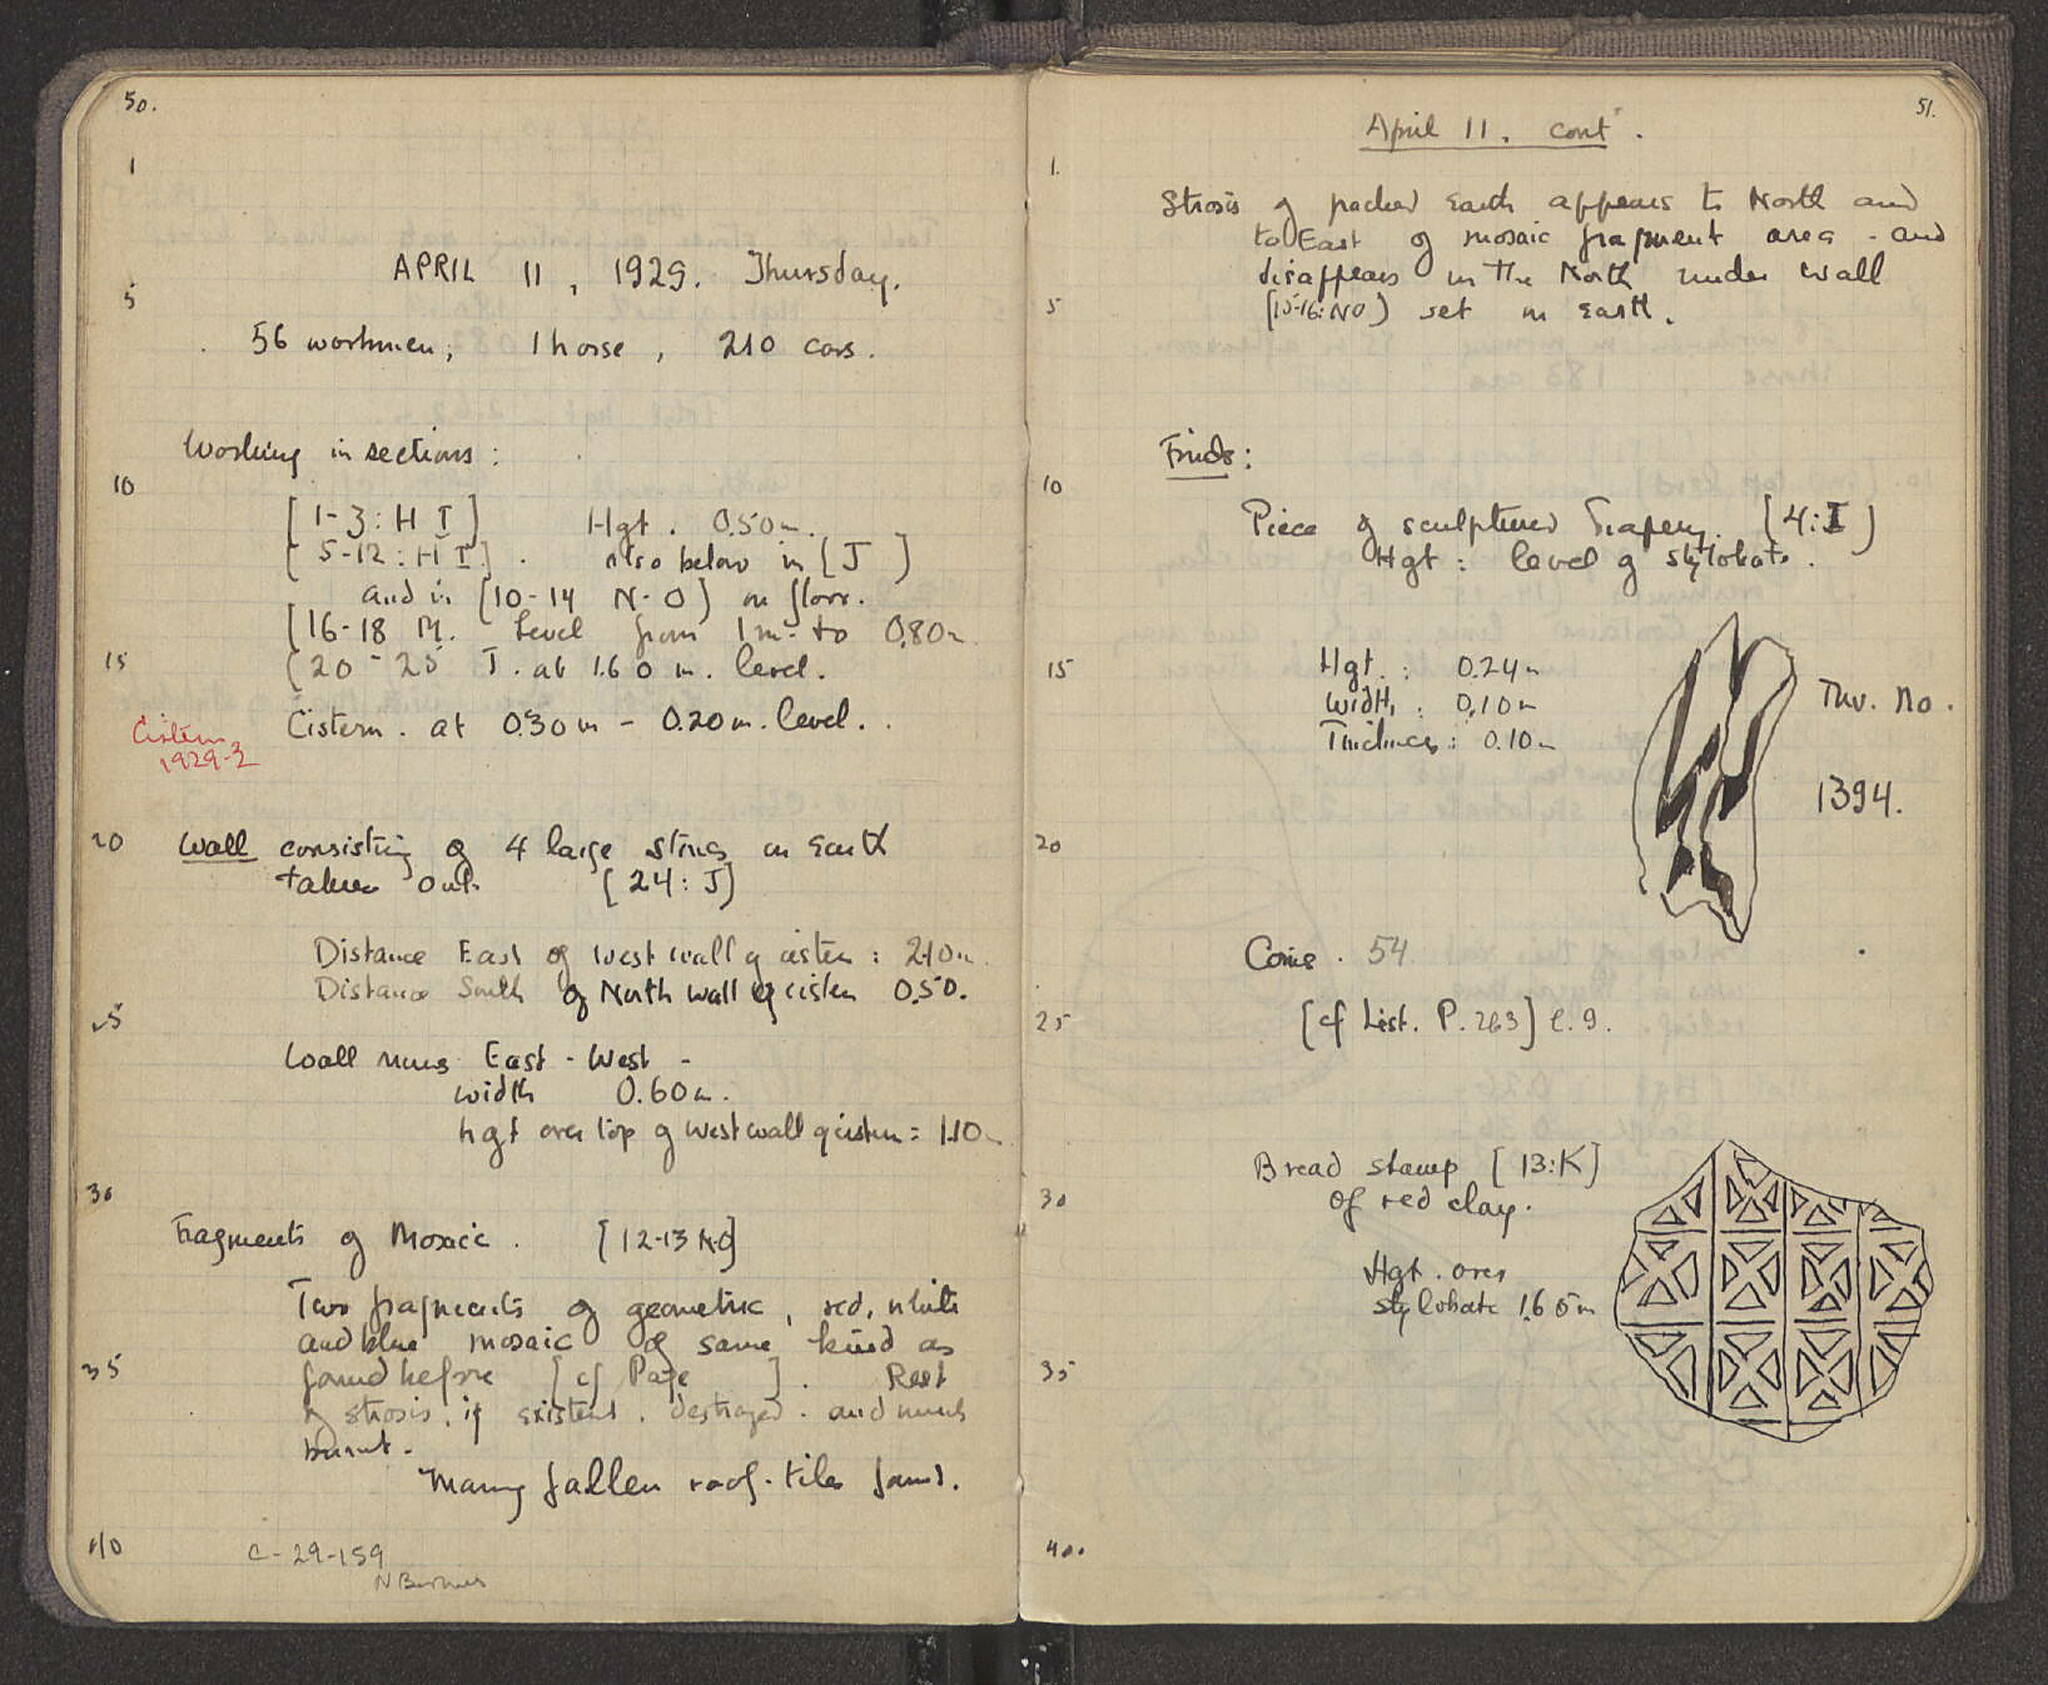 50.
1
APRIL 11, 1929. Thursday.
5
56 workmen; 1 horse, 210 cars.
Working in sections:
10
[1-3: H I] Hgt. 0.50m.
[5-12: H I]. also below in [J]
and in [10-14 N-O] on floor.
[16-18 M. Level from 1m. to 0.80m
15
[20-25 J. at 1.60m. level.
Cistern. at 0.30m - 0.20m. level.
Cistern
1929-2
20
Wall consisting of 4 large stones in earth
taken out. [24: J]
Distance East of west wall of cistern: 2.10m.
Distance South of North wall of cistern 0.50.
25
Wall runs East - West -
width 0.60m.
hgt over top of west wall of cistern = 1.10m
30
Fragments of Mosaic. [12-13 N-O]
Two fragments of geometric, red, white
and blue mosaic of same kind as
35
found before [cf Page ]. Rest
of strosis, if existent, destroyed. and much
burnt.
Many fallen roof-tiles found.
40
C-29-159
51.
April 11. cont.
1.
Strosis of packed earth appears to North and
to East of mosaic fragment area - and
disappears in the North under wall
5
[15-16: NO] set in earth.
Finds:
10
Piece of sculptured drapery. [4: I]
Hgt: level of stylobate.
15
Hgt.: 0.24m
Width: 0.10m
Thickness: 0.10m
Inv. No.
1394.
20
Coins. 54
25
[cf List. P. 263] l. 9.
Bread stamp [13:K]
30
of red clay.
Hgt. over
stylobate 1.65m
35
40.